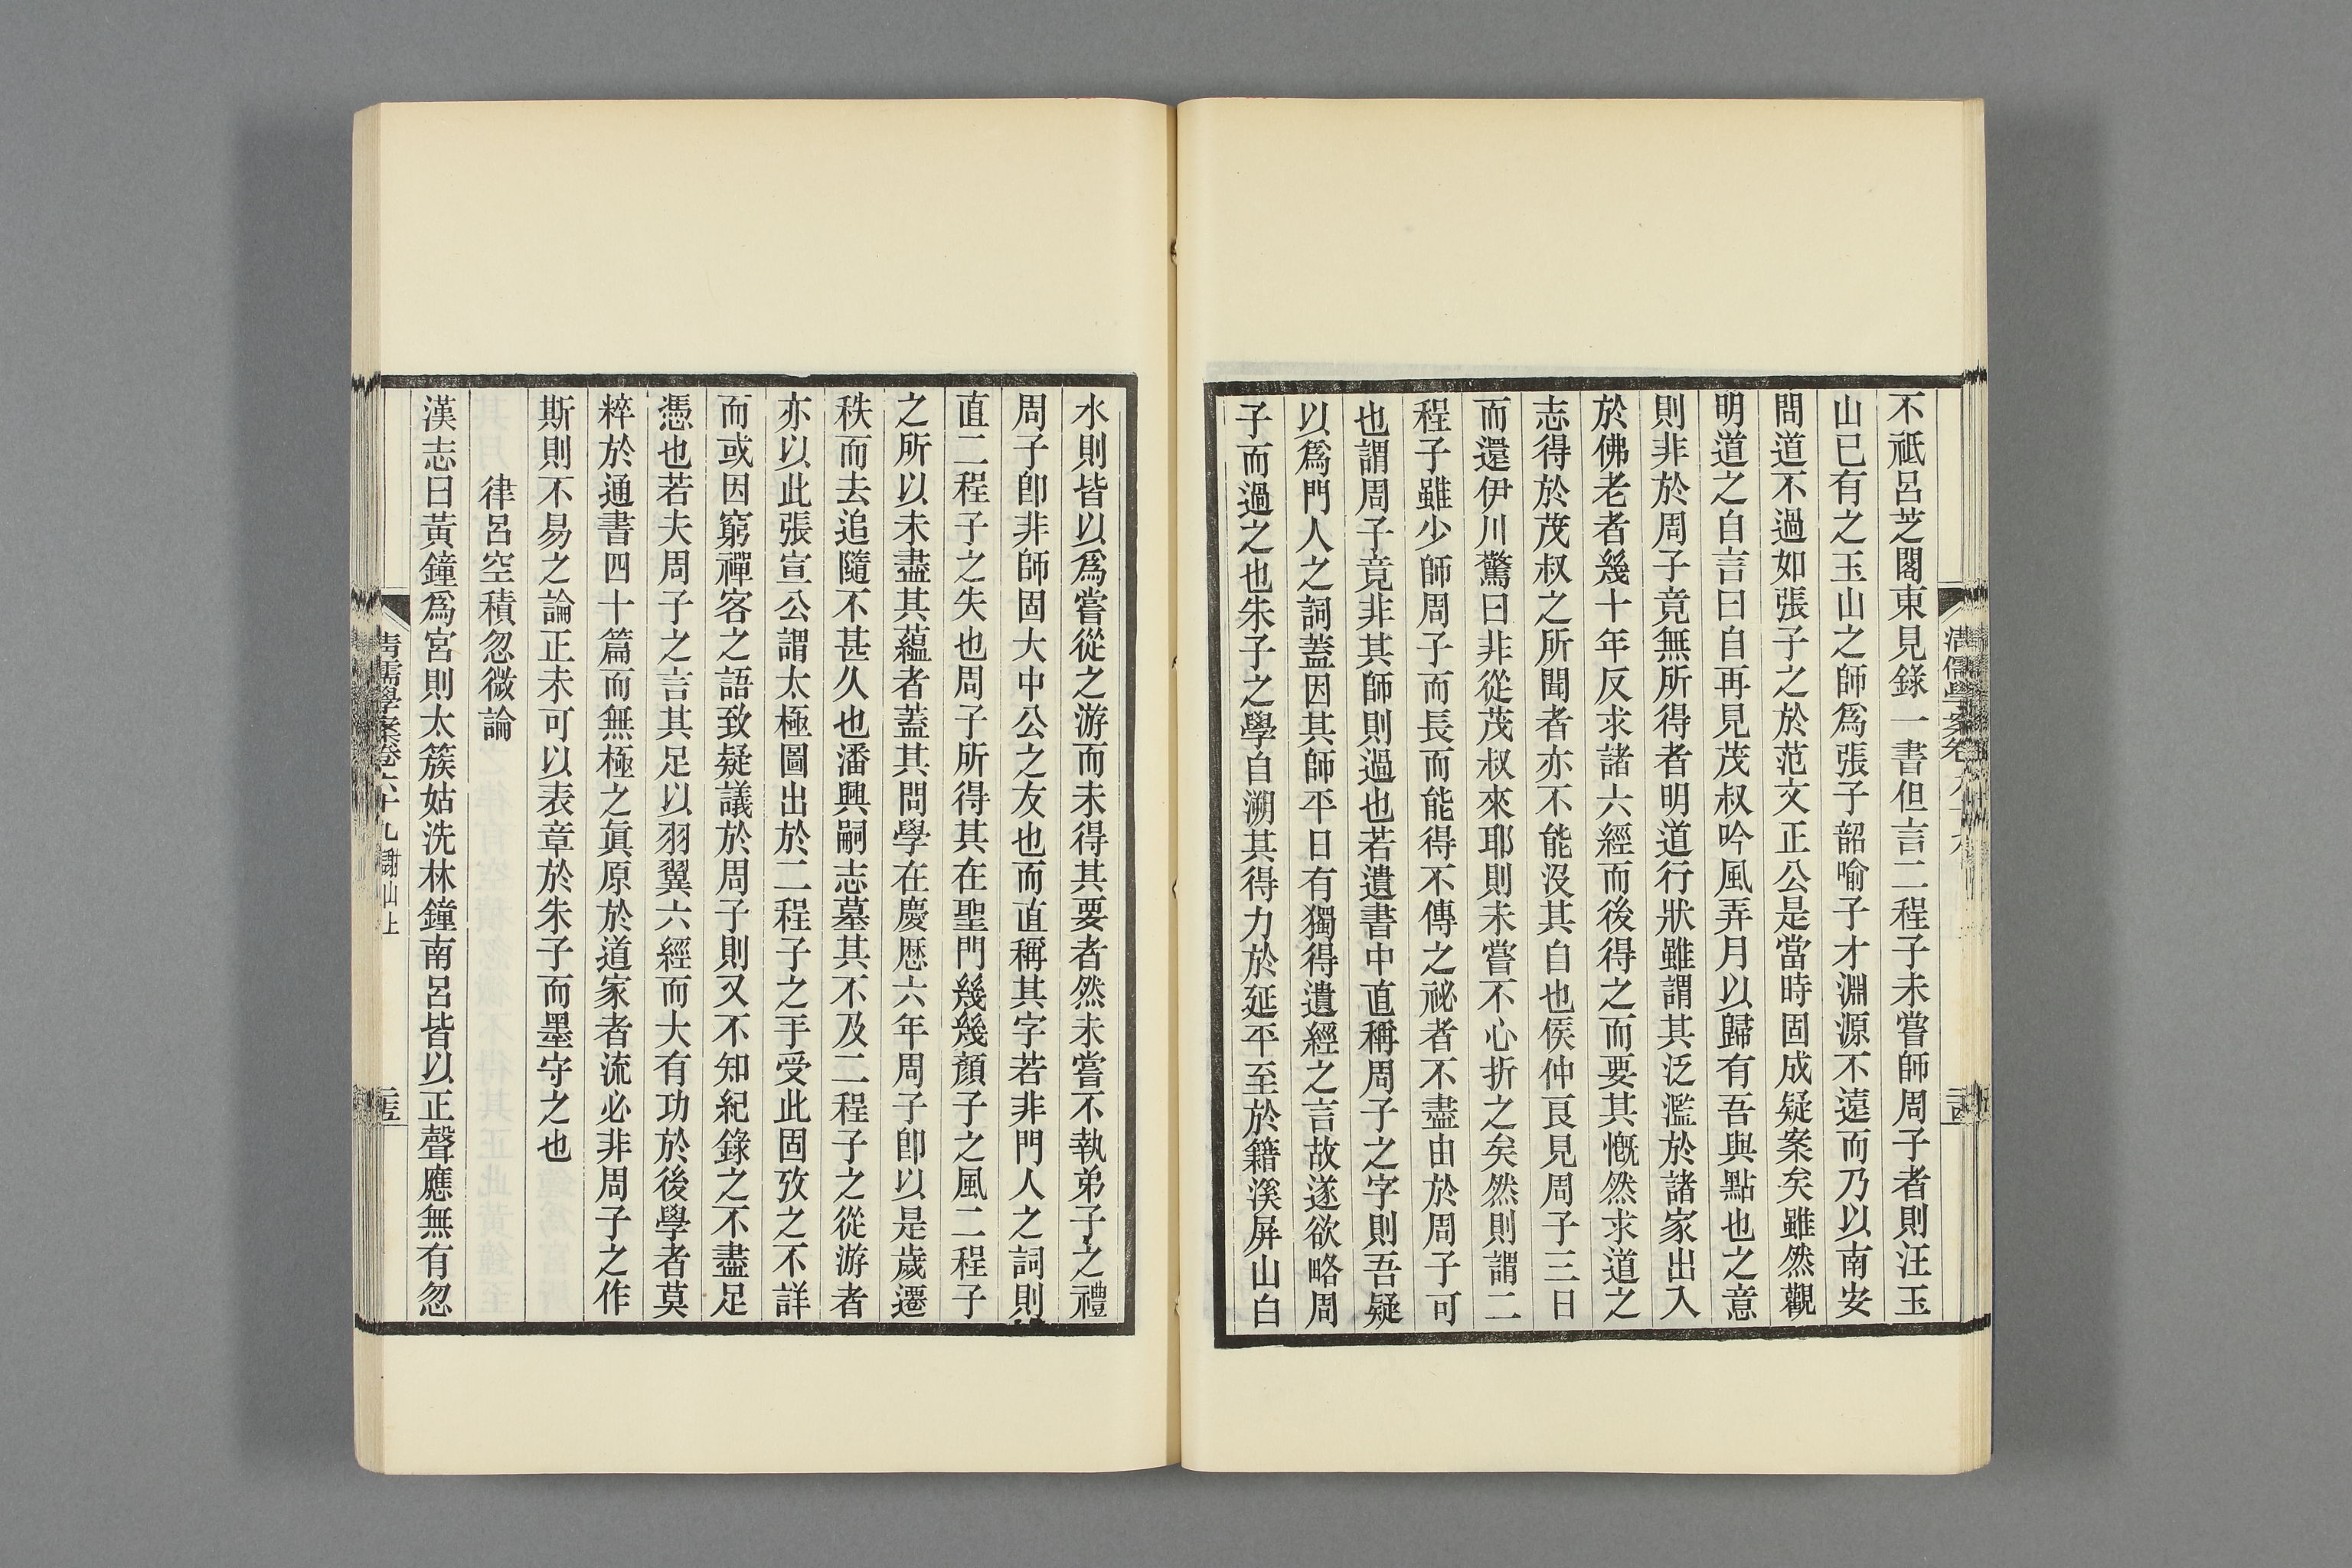 不祗呂芝閣東見錄一書但言二程子未嘗師周子者則汪玉
山已有之玉山之師爲張子韶喻子才淵源不遠而乃以南安
問道不過如張子之於范文正公是當時固成疑案矣雖然觀
明道之自言曰自再見茂叔吟風弄月以歸有吾與點也之意
則非於周子竟無所得者明道行狀雖謂其泛濫於諸家出入
於佛老者幾十年反求諸六經而後得之而要其慨然求道之
志得於茂叔之所聞者亦不能沒其自也侯仲良見周子三日
而還伊川驚曰非從茂叔來耶則未嘗不心折之矣然則謂二
程子雖少師周子而長而能得不傳之祕者不盡由於周子可
也謂周子竟非其師則過也若遺書中直稱周子之字則吾疑
以爲門人之詞蓋因其師平日有獨得遺經之言故遂欲略周
子而過之也朱子之學自溯其得力於延平至於籍溪屏山白
水則皆以爲嘗從之游而未得其要者然未嘗不執弟子之禮
周子卽非師固大中公之友也而直稱其字若非門人之詞則
直二程子之失也周子所得其在聖門幾幾顏子之風二程子
之所以未盡其蘊者蓋其問學在慶厯六年周子卽以是歲遷
秩而去追隨不甚久也潘興嗣志墓其不及二程子之從游者
亦以此張宣公謂太極圖出於二程子之手受此固攷之不詳
而或因窮禪客之語致疑議於周子則又不知紀錄之不盡足
憑也若夫周子之言其足以羽翼六經而大有功於後學者莫
粹於通書四十篇而無極之眞原於道家者流必非周子之作
斯則不易之論正未可以表章於朱子而墨守之也
律呂空積忽微論
漢志曰黃鐘爲宮則太簇姑洗林鐘南呂皆以正聲應無有忽
清儒學案卷六十九 謝山上